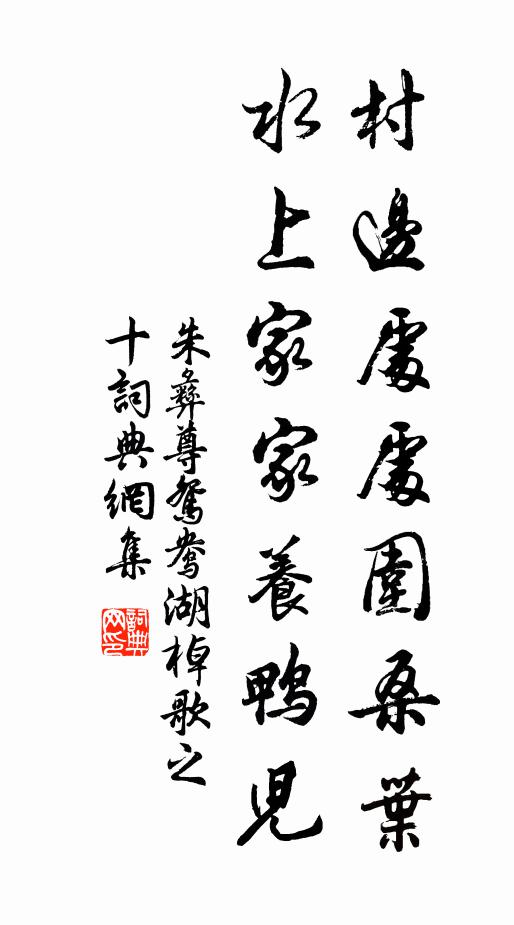 村邊處處圍桑葉
水上家家養鴨兒
朱彝尊鴛鴦湖棹歌之
十詞典網集
詞典
网印